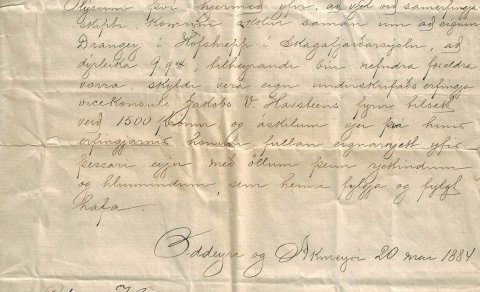 lýsum því hjermeð yfir, að vjer við samerfingja
skipti komum okkur saman um að eignin
Drangey í Hofshrepp í Skagafjarðarsýslu, að
dýrleika 9.94, tilheyrandi búi nefndra foreldra
vorra, skyldi vera eign undirskrifaðs erfingja
vicekonsuls Jakobs V. Havsteens fyrir tilsett
verð 1500 krónur og áskilum vjer frá hinum
erfingjarnir honum fullan eignarrjett yfir
þessari eyju með öllum þeim rjettindum
og hlunnindum, sem henni fylgja og fylgt
hafa.
Oddeyri og Akureyri 20 mai 1884